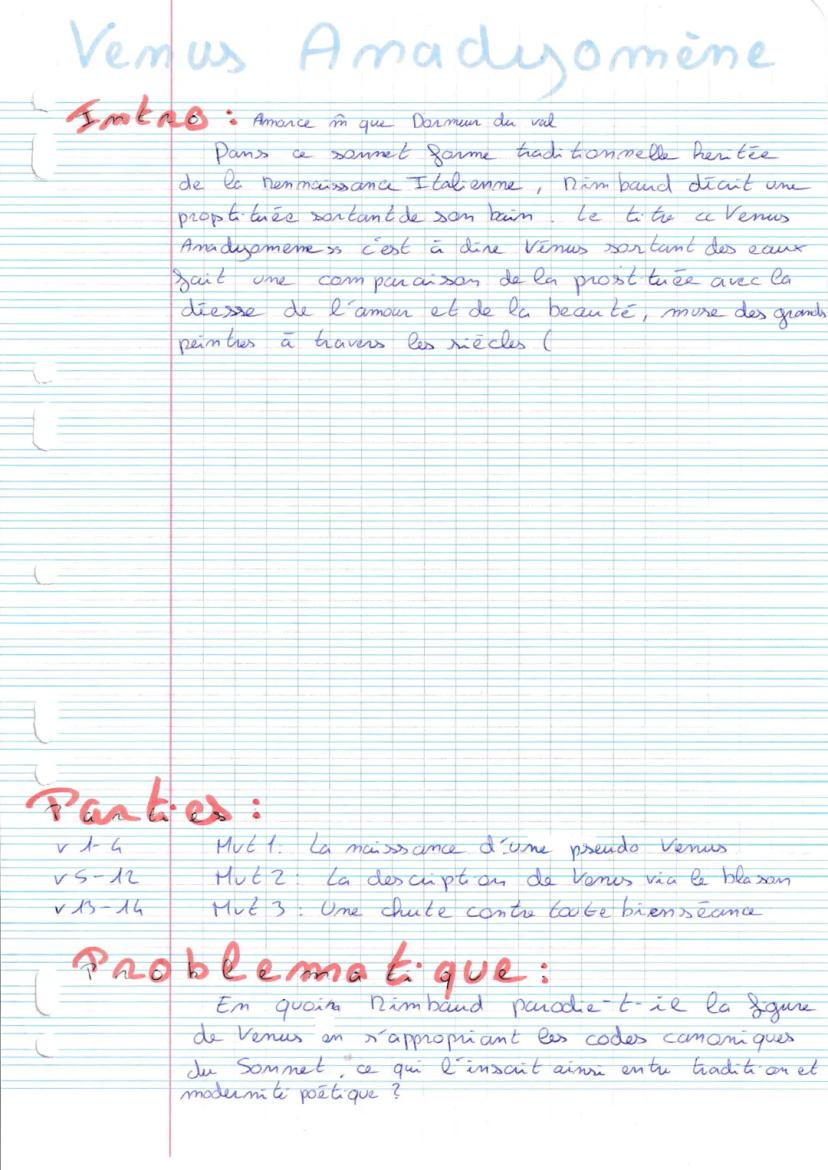 Venus Anadyomène
Intro : Amorce m̄ que Dormeur du val
Dans ce sonnet forme traditionnelle heritée
de la Rennaissance Italienne, Rimbaud décrit une
proptituée sortant de son bain. Le titre « Venus
Anadyomene » c'est à dire Vénus sortant des eaux
fait une comparaison de la prostituée avec la
déesse de l'amour et de la beauté, muse des grands
peintres à travers les siècles (
Parties :
v 1-4 Mvt 1: La naissance d'une pseudo Venus
v 5-12 Mvt 2: La description de Venus via le blason
v 13-14 Mvt 3: Une chute contre toute bienséance
Problematique :
En quoi Rimbaud parodie-t-il la figure
de Venus en s'appropriant les codes canoniques
du Sonnet, ce qui l'inscrit ainsi entre tradition et
modernité poétique ?